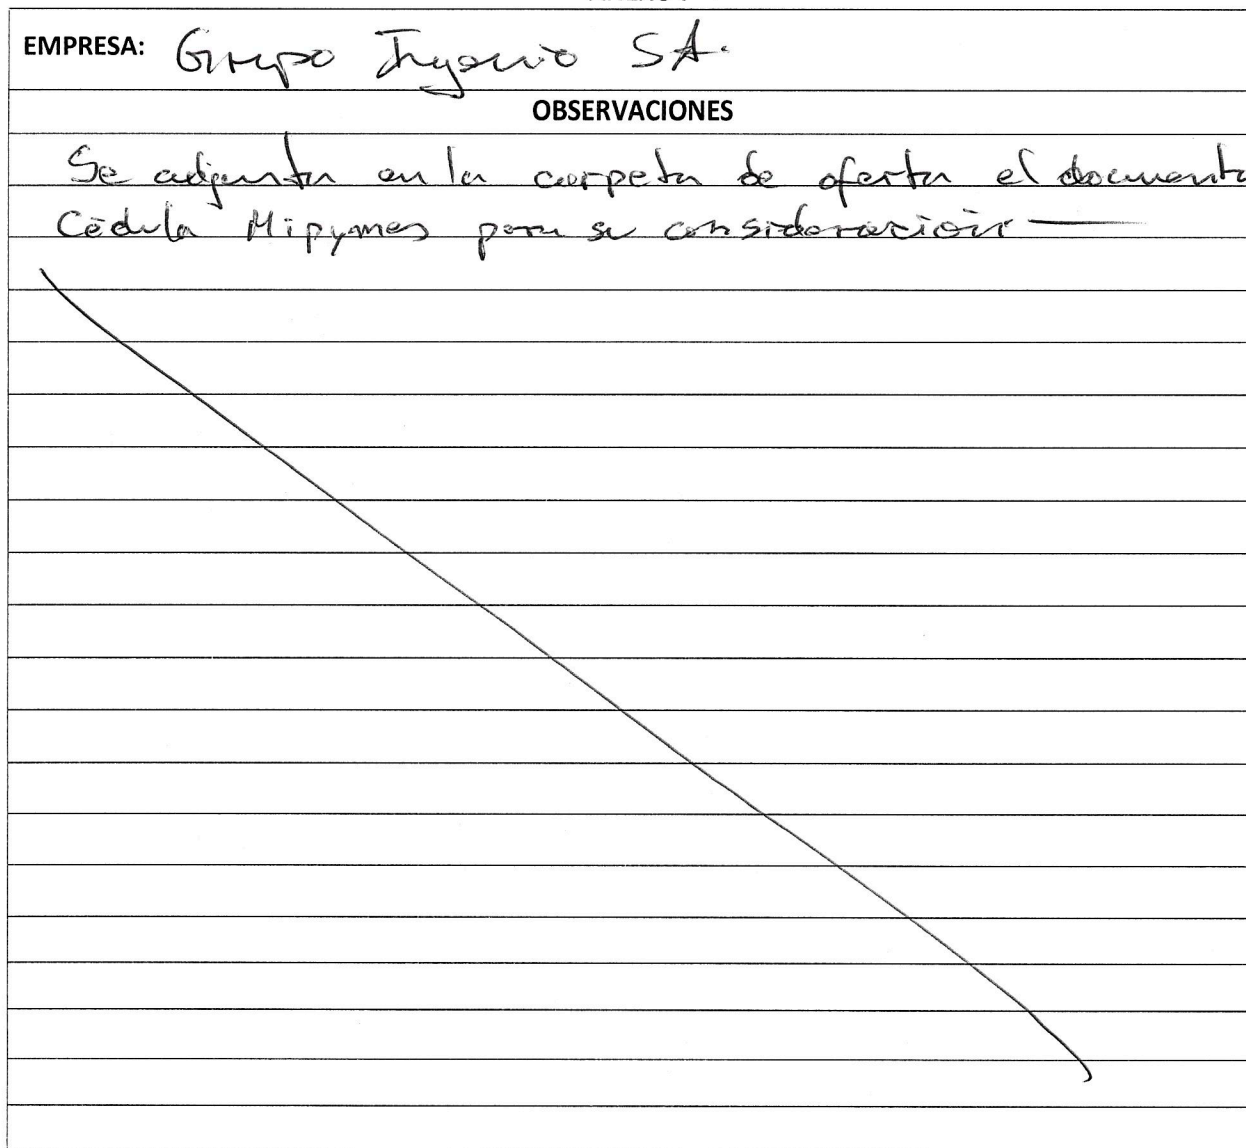 EMPRESA: Grupo Ingenio SA.
OBSERVACIONES
Se adjunta en la carpeta de oferta el documento
Cédula Mipymes para su consideración —